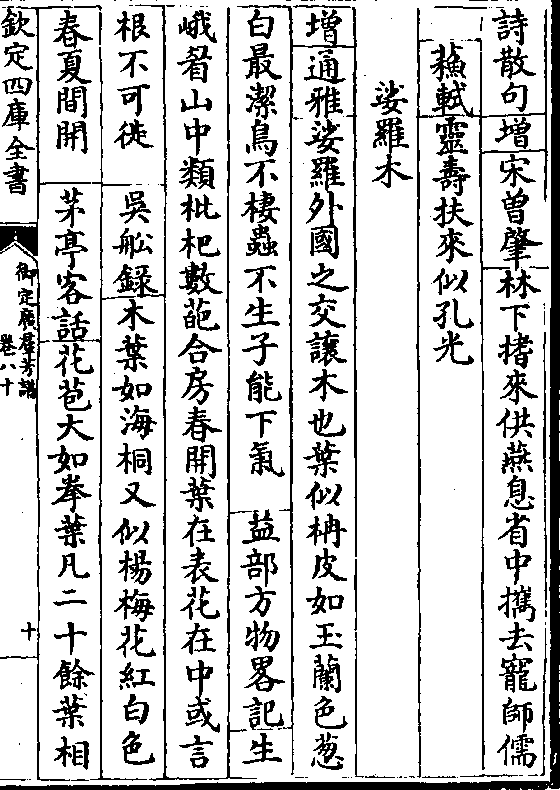 詩散句增宋曾肇林下搘來供燕息省中攜去寵師儒
蘓軾靈壽扶來似孔光
娑羅木
增通雅娑羅外國之交讓木也葉似枏皮如玉蘭色葱
白最潔鳥不棲蟲不生子能下氣　益部方物畧記生
峨睂山中類枇杷數葩合房春開葉在表花在中或言
根不可徙　吳船錄木葉如海桐又似楊梅花紅白色
春夏間開　茅亭客話花苞大如拳葉凡二十餘葉相
欽定四庫全書
御定廣羣芳譜
卷八十
十